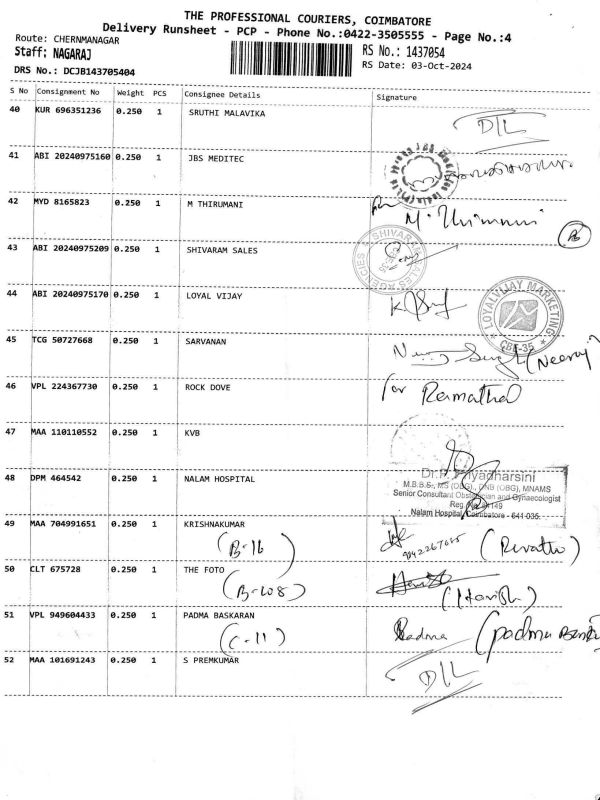 THE PROFESSIONAL COURIERS, COIMBATORE
Delivery Runsheet - PCP - Phone No.:0422-3505555 - Page No.:4
Route: CHERNMANAGAR
Staff: NAGARAJ
RS No.: 1437054
RS Date: 03-Oct-2024
DRS No.: DCJB143705404
S No Consignment No Weight PCS Consignee Details Signature
40 KUR 696351236 0.250 1 SRUTHI MALAVIKA D/L
41 ABI 20240975160 0.250 1 JBS MEDITEC
42 MYD 8165823 0.250 1 M THIRUMANI M. Thirumani
43 ABI 20240975209 0.250 1 SHIVARAM SALES
SHIVARAM SALES AGENCIES
44 ABI 20240975170 0.250 1 LOYAL VIJAY
LOYALVIJAY MARKETING CBE-35
45 TCG 50727668 0.250 1 SARVANAN (Neeraj)
46 VPL 224367730 0.250 1 ROCK DOVE for
47 MAA 110110552 0.250 1 KVB
48 DPM 464542 0.250 1 NALAM HOSPITAL
M.B.B.S., MS (OBG)., DNB (OBG), MNAMS
Senior Consultant Obstetrician and Gynaecologist
Nalam Hospital, Coimbatore - 641 035.
49 MAA 704991651 0.250 1 KRISHNAKUMAR
(B-16) (Revathi)
50 CLT 675728 0.250 1 THE FOTO
(B-108) (Harish)
51 VPL 949604433 0.250 1 PADMA BASKARAN Padma
(C-11)
52 MAA 101691243 0.250 1 S PREMKUMAR D/L